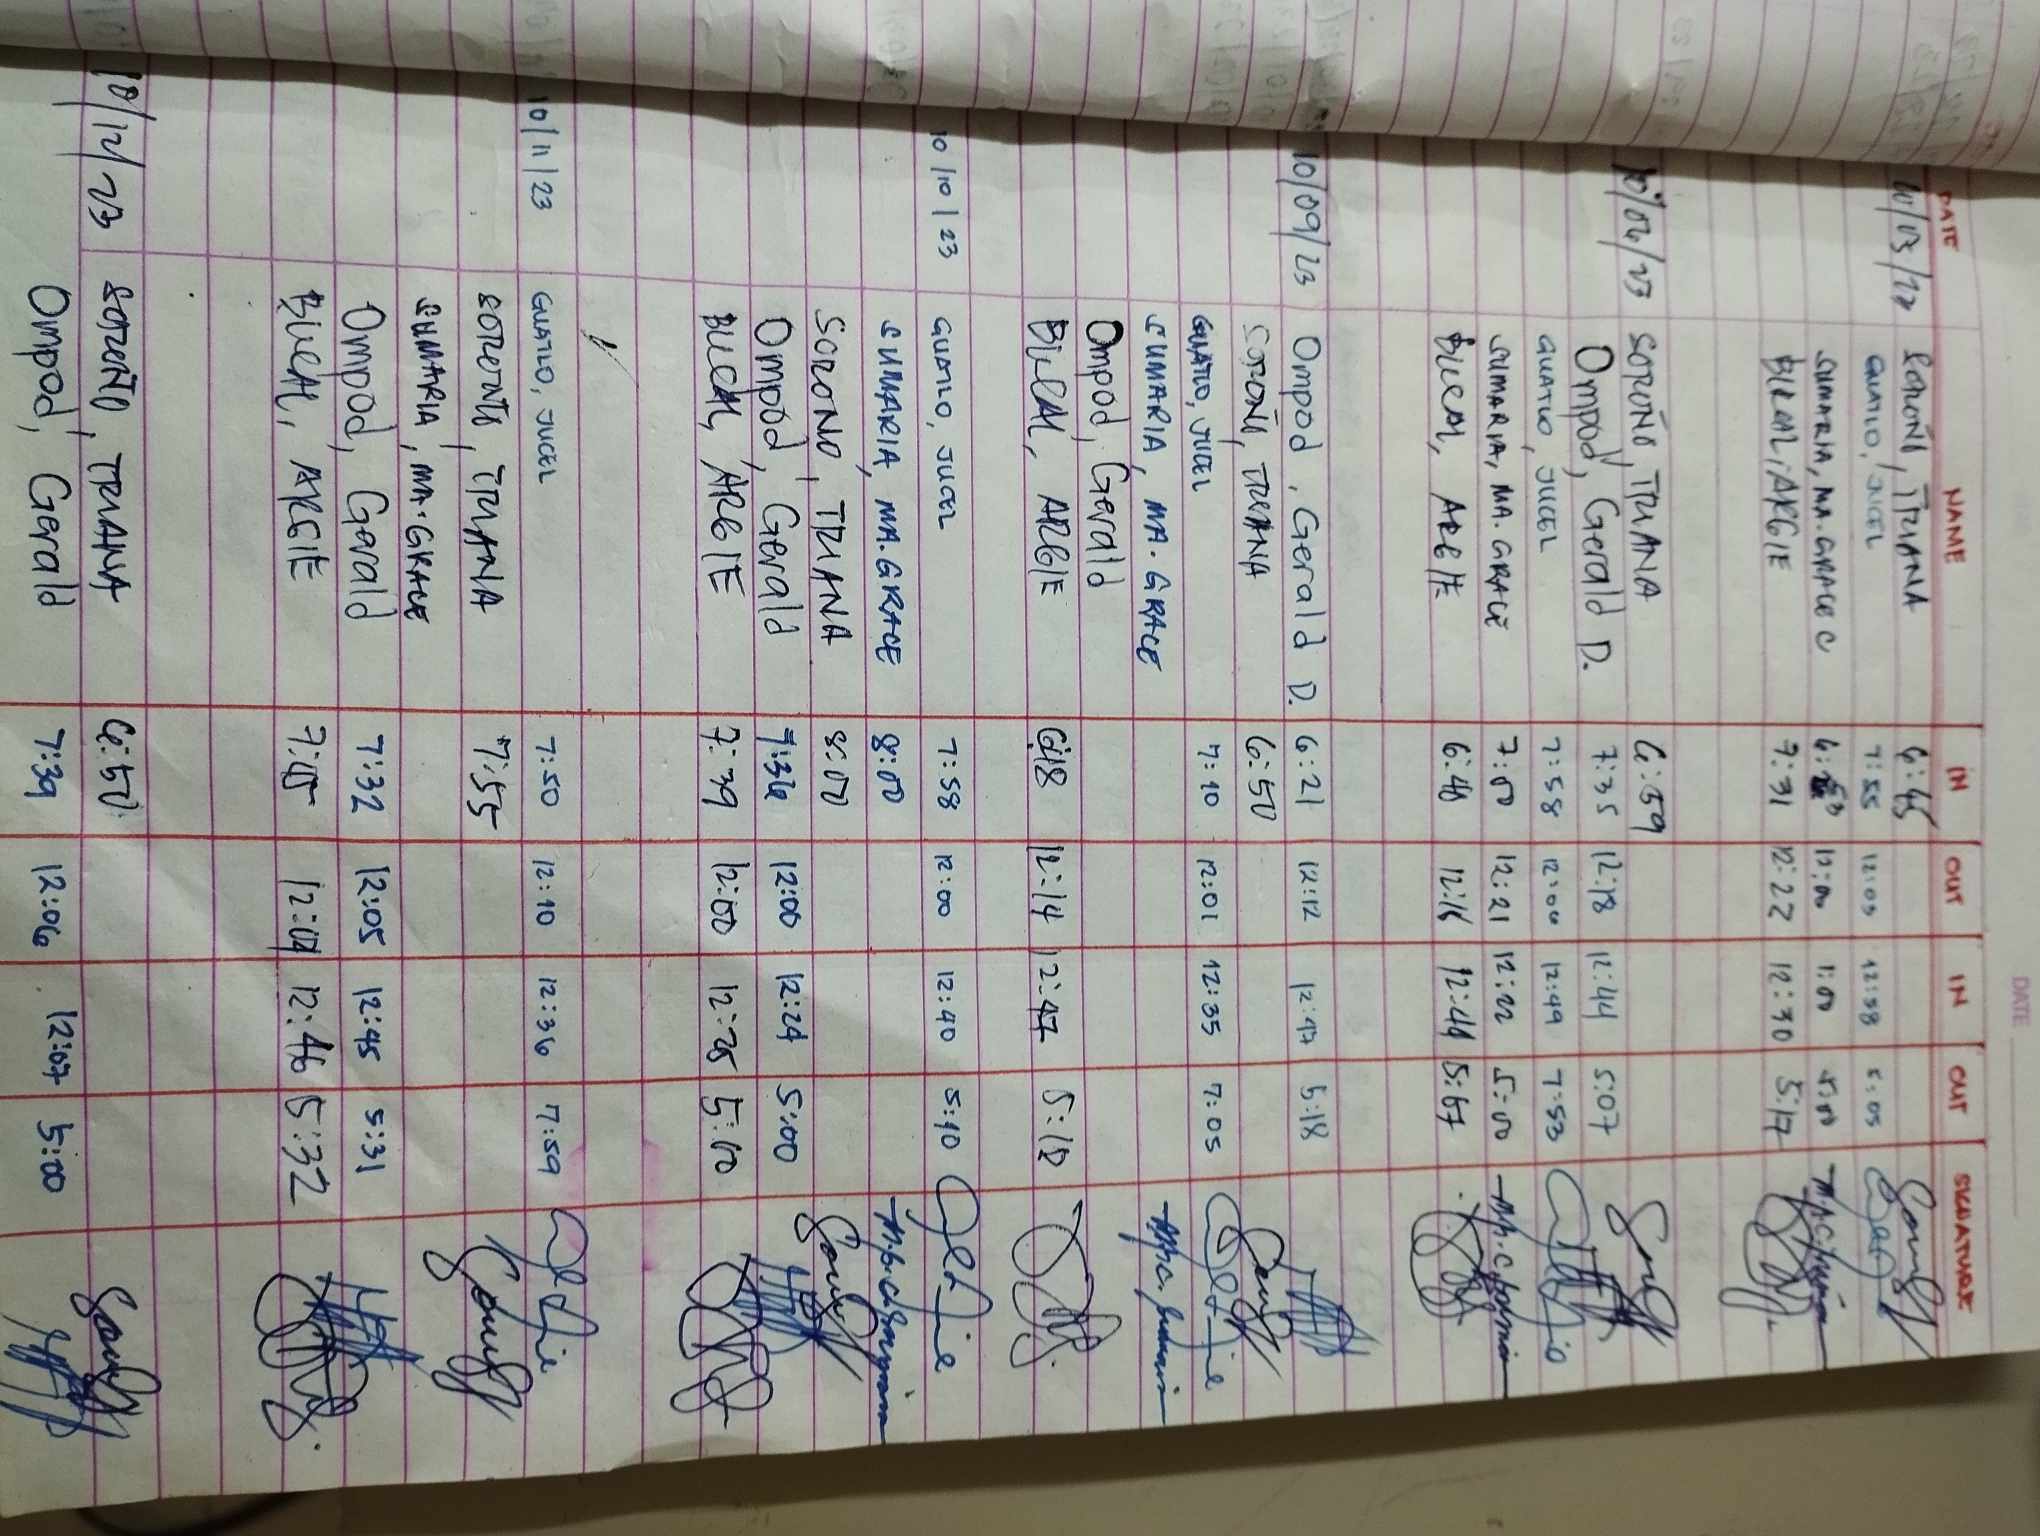 DATE
DATE NAME IN OUT IN OUT SIGNATURE
SOROÑO, TRIANA 6:45
GUATLO, JUCEL 7:55 12:03 12:38 5:05
SUMARIA, MA. GRACE C 12:00 1:00 5:00
BUCAL, ARGIE 7:31 12:22 12:30 5:17
10/06/23 SOROÑO, TRIANA 6:59
Ompod, Gerald D. 7:35 12:18 12:44 5:07
GUATLO, JUCEL 7:58 12:00 12:49 7:53
SUMARIA, MA. GRACE 7:00 12:21 12:22 5:00
BUCAL, ARGIE 6:40 12:16 12:44
10/09/23 Ompod, Gerald D. 6:21 12:12 12:47 5:18
SOROÑO, TRIANA 6:50
GUATLO, JUCEL 7:10 12:01 12:35 7:05
SUMARIA, MA. GRACE
Ompod, Gerald
BUCAL, ARGIE 6:18 12:14 12:47 5:18
10/10/23 GUATLO, JUCEL 7:58 12:00 12:40 5:10
SUMARIA, MA. GRACE 8:00
SOROÑO, TRIANA 8:00
Ompod, Gerald 7:36 12:00 12:24 5:00
BUCAL, ARGIE 7:39 12:00 12:25 5:00
10/11/23 GUATLO, JUCEL 7:50 12:10 12:36 7:59
SOROÑO, TRIANA 7:55
SUMARIA, MA. GRACE
Ompod, Gerald 7:32 12:05 12:45 5:31
BUCAL, ARGIE 12:04 12:46 5:32
10/12/23 SOROÑO, TRIANA 6:50
Ompod, Gerald 7:39 12:06 12:07 5:00